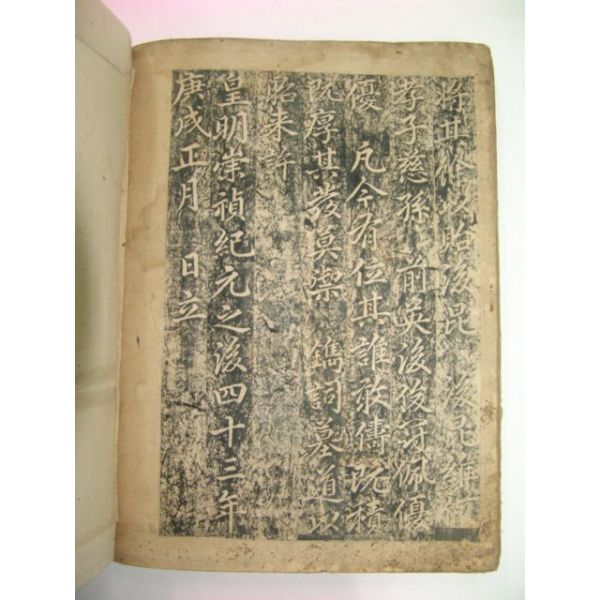 其 後昆 後昆
孝子慈孫 前 後 佩優
優 凡今有位其誰敢儔既積
既厚其發莫禦 鐫詞墓道以
昭來許
皇明崇禎紀元之後四十三年
庚戌正月 日立